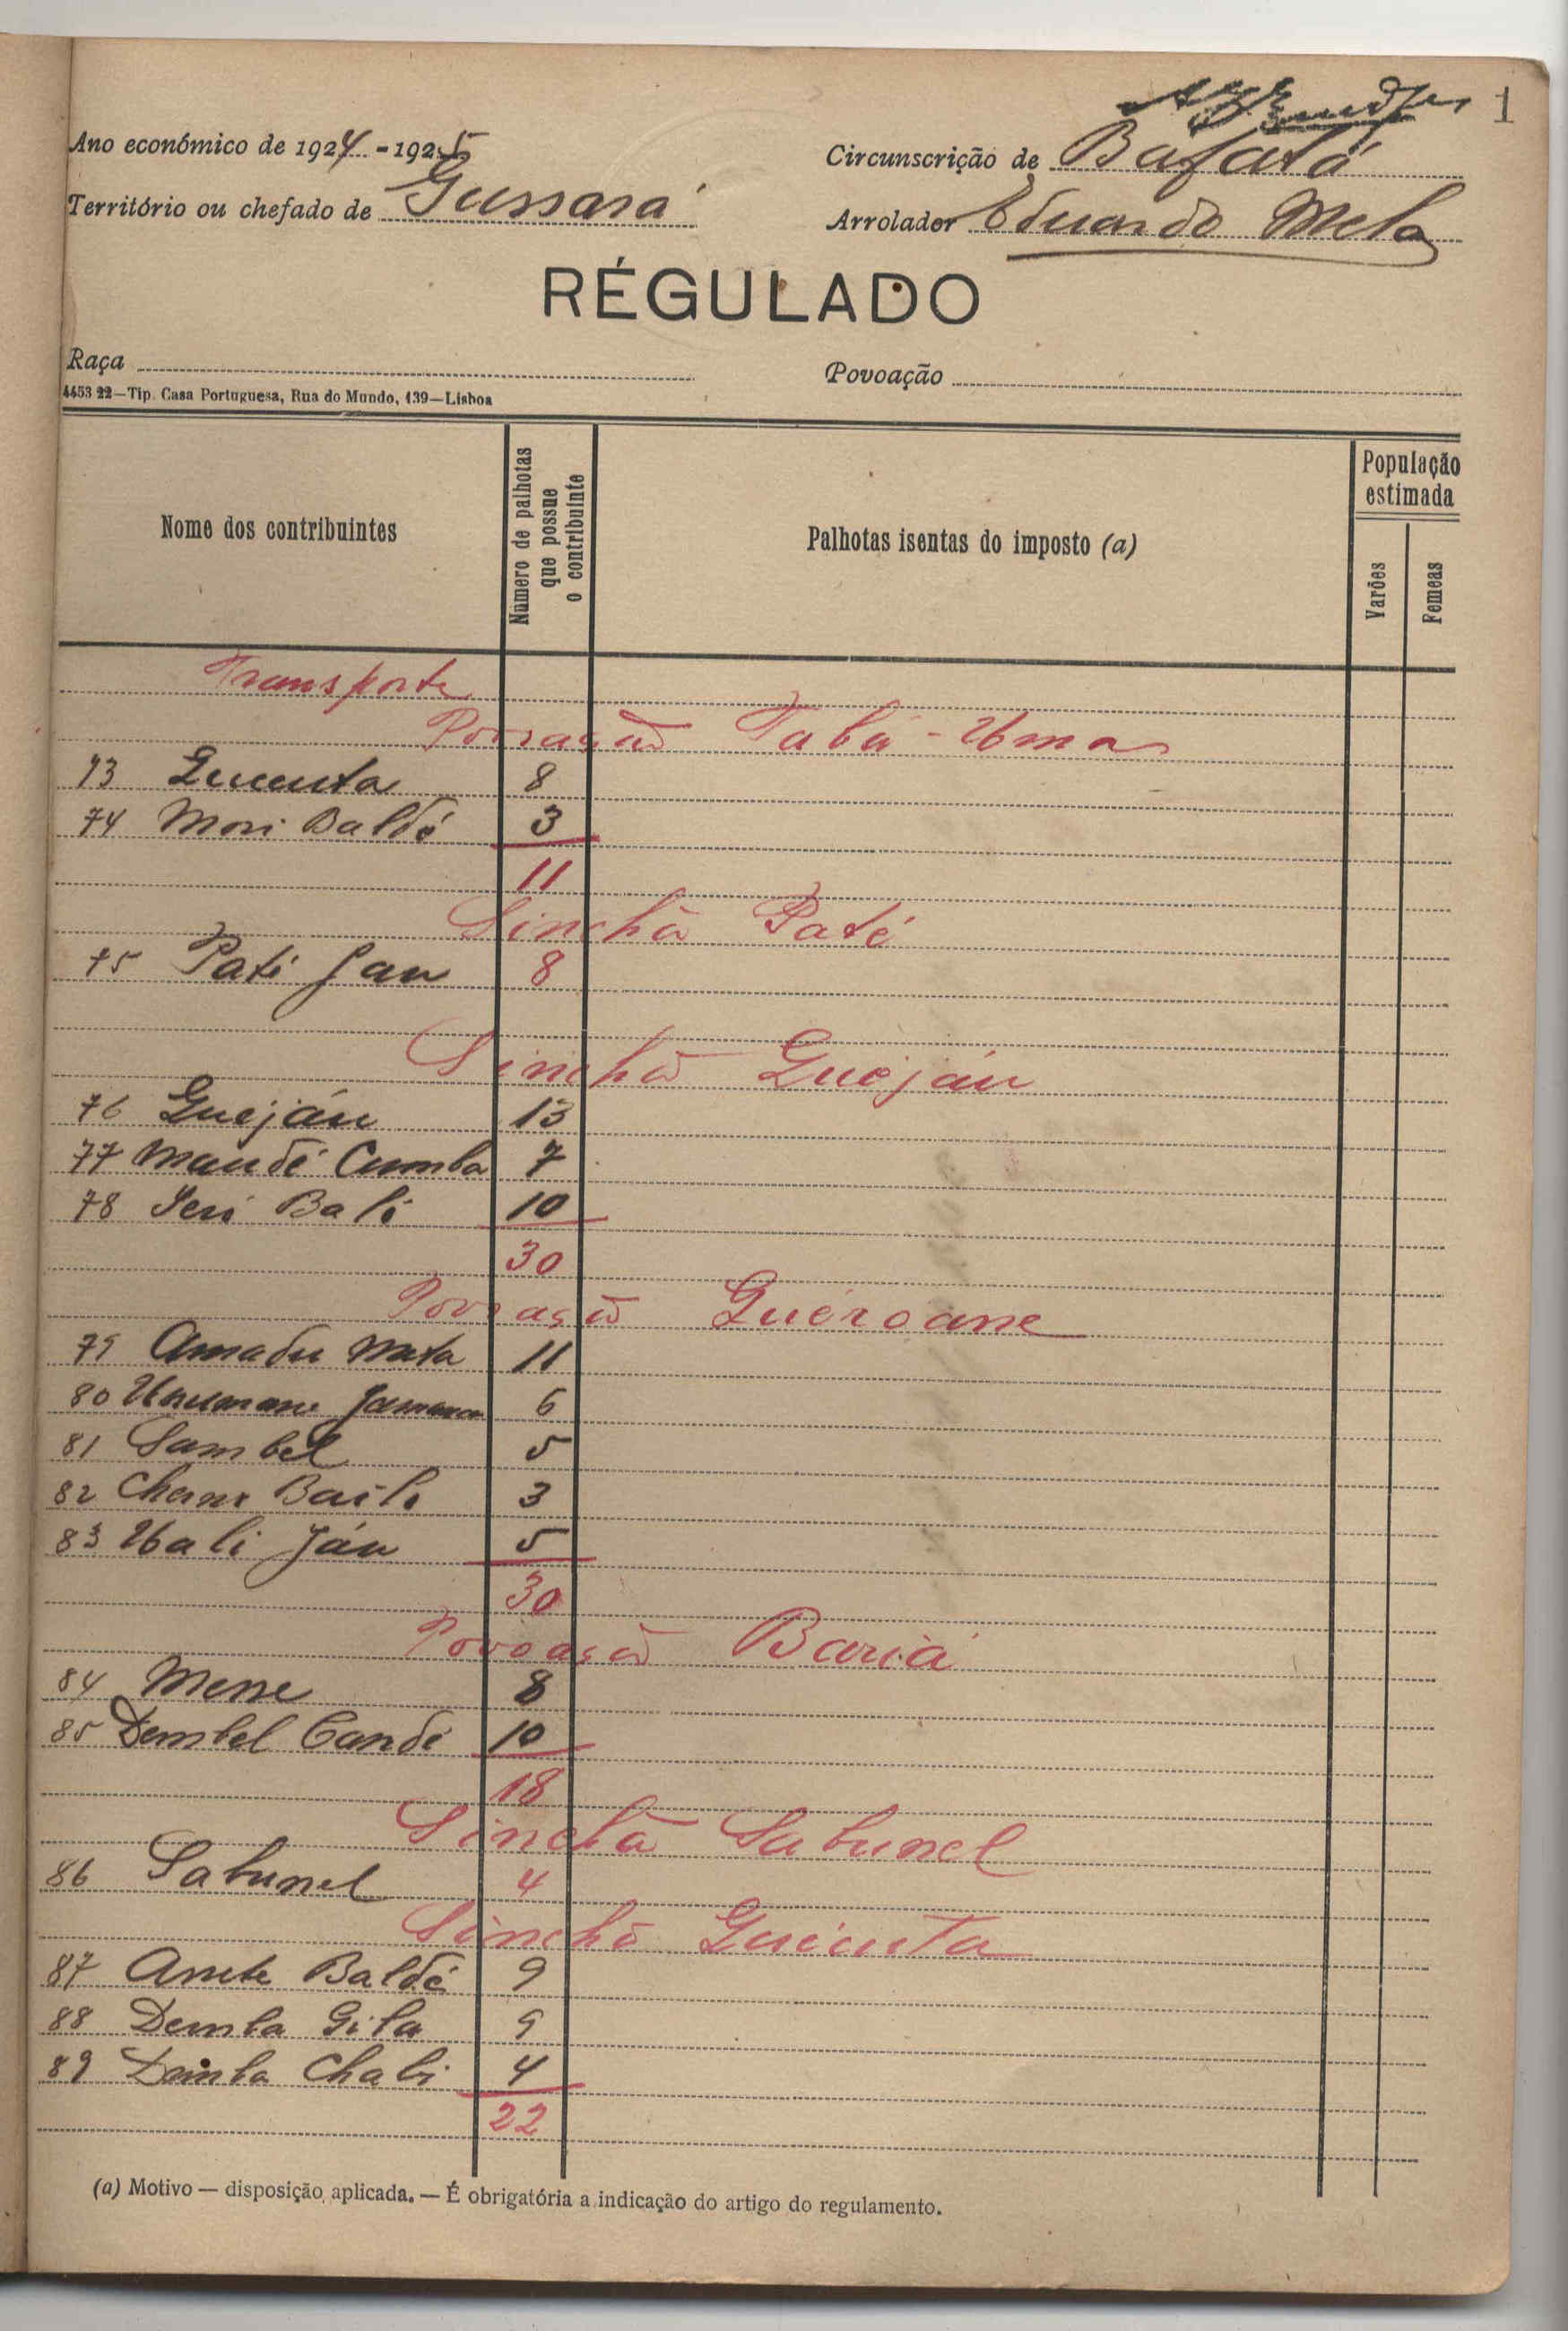 1
Ano económico de 1924-1925
Circunscrição de Bafatá
Território ou chefado de Gussará
Arrolador Eduardo Melo
RÉGULADO
Raça
Povoação
4453 22—Tip. Casa Portuguesa, Rua do Mundo, 139—Lisboa
Nome dos contribuintes
Número de palhotas que possue o contribuinte
Palhotas isentas do imposto (a)
População estimada
Varões
Femeas
Transporte
Povoação
73 8
74 Mori Baldé 3
11
Sinchã Paté
75 Paté Jau 8
Sinchã Gueján
76 Gueján 13
77 Maudé Cumba 7
78 10
30
Povoação Gueroane
79 Amadu 11
80 6
81 Sambel 5
82 Bailo 3
83 Uali Jáu 5
30
Povoação
84 8
85 Dembel Candé 10
18
Sinchã Satunel
86 Satunel 4
Sinchã
87 Baldé 9
88 Demba 9
89 Demba 4
22
(a) Motivo — disposição aplicada. — É obrigatória a indicação do artigo do regulamento.